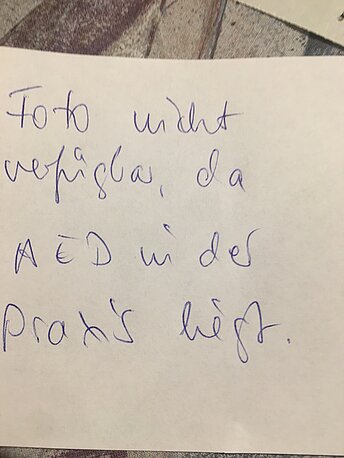 Foto nicht
verfügbar, da
AED in der
Praxis liegt.